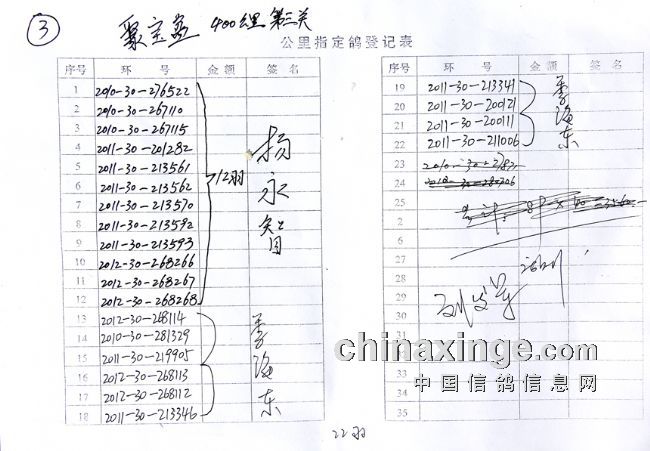 ③ 聚宝盆 400公里 第三关
公里指定鸽登记表
序号 环 号 金额 签名
1 2010-30-276522
2 2010-30-267110
3 2010-30-267115
4 2011-30-201282
5 2011-30-213561
6 2011-30-213562
7 2011-30-213570
8 2011-30-213592
9 2011-30-213593
10 2012-30-268266
11 2012-30-268267
12 2012-30-268268
12羽
杨永
13 2012-30-268114
14 2010-30-281329
15 2011-30-219905
16 2012-30-268113
17 2012-30-268112
18 2011-30-213346
李海东
序号 环 号 金额 签名
19 2011-30-213341
20 2011-30-200121
21 2011-30-200111
22 2011-30-211006
李海东
23
24
25
2
6
27
28
29
30
31
33
34
35
22羽
chinaxinge.com
中国信鸽信息网